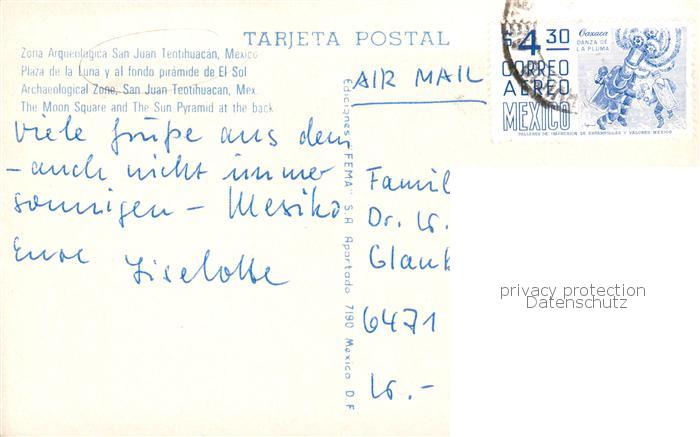 TARJETA POSTAL
Zona Arqueológica San Juan Teotihuacán, México
Plaza de la Luna y al fondo pirámide de El Sol
Archaeological Zone, San Juan Teotihuacan, Mex.
The Moon Square and The Sun Pyramid at the back
Viele Grüße aus dem
- auch nicht immer
sonnigen - Mexiko
Eure Liselotte
Ediciones "FEMA" S.A Apartado 7190 Mexico D.F
AIR MAIL
$4.30
Oaxaca
DANZA DE
LA PLUMA
CORREO
AEREO
MEXICO
TALLERES DE IMPRESION DE ESTAMPILLAS Y VALORES MEXICO
Famil
Dr. W.
Glaub
6471
W.-
privacy protection
Datenschutz